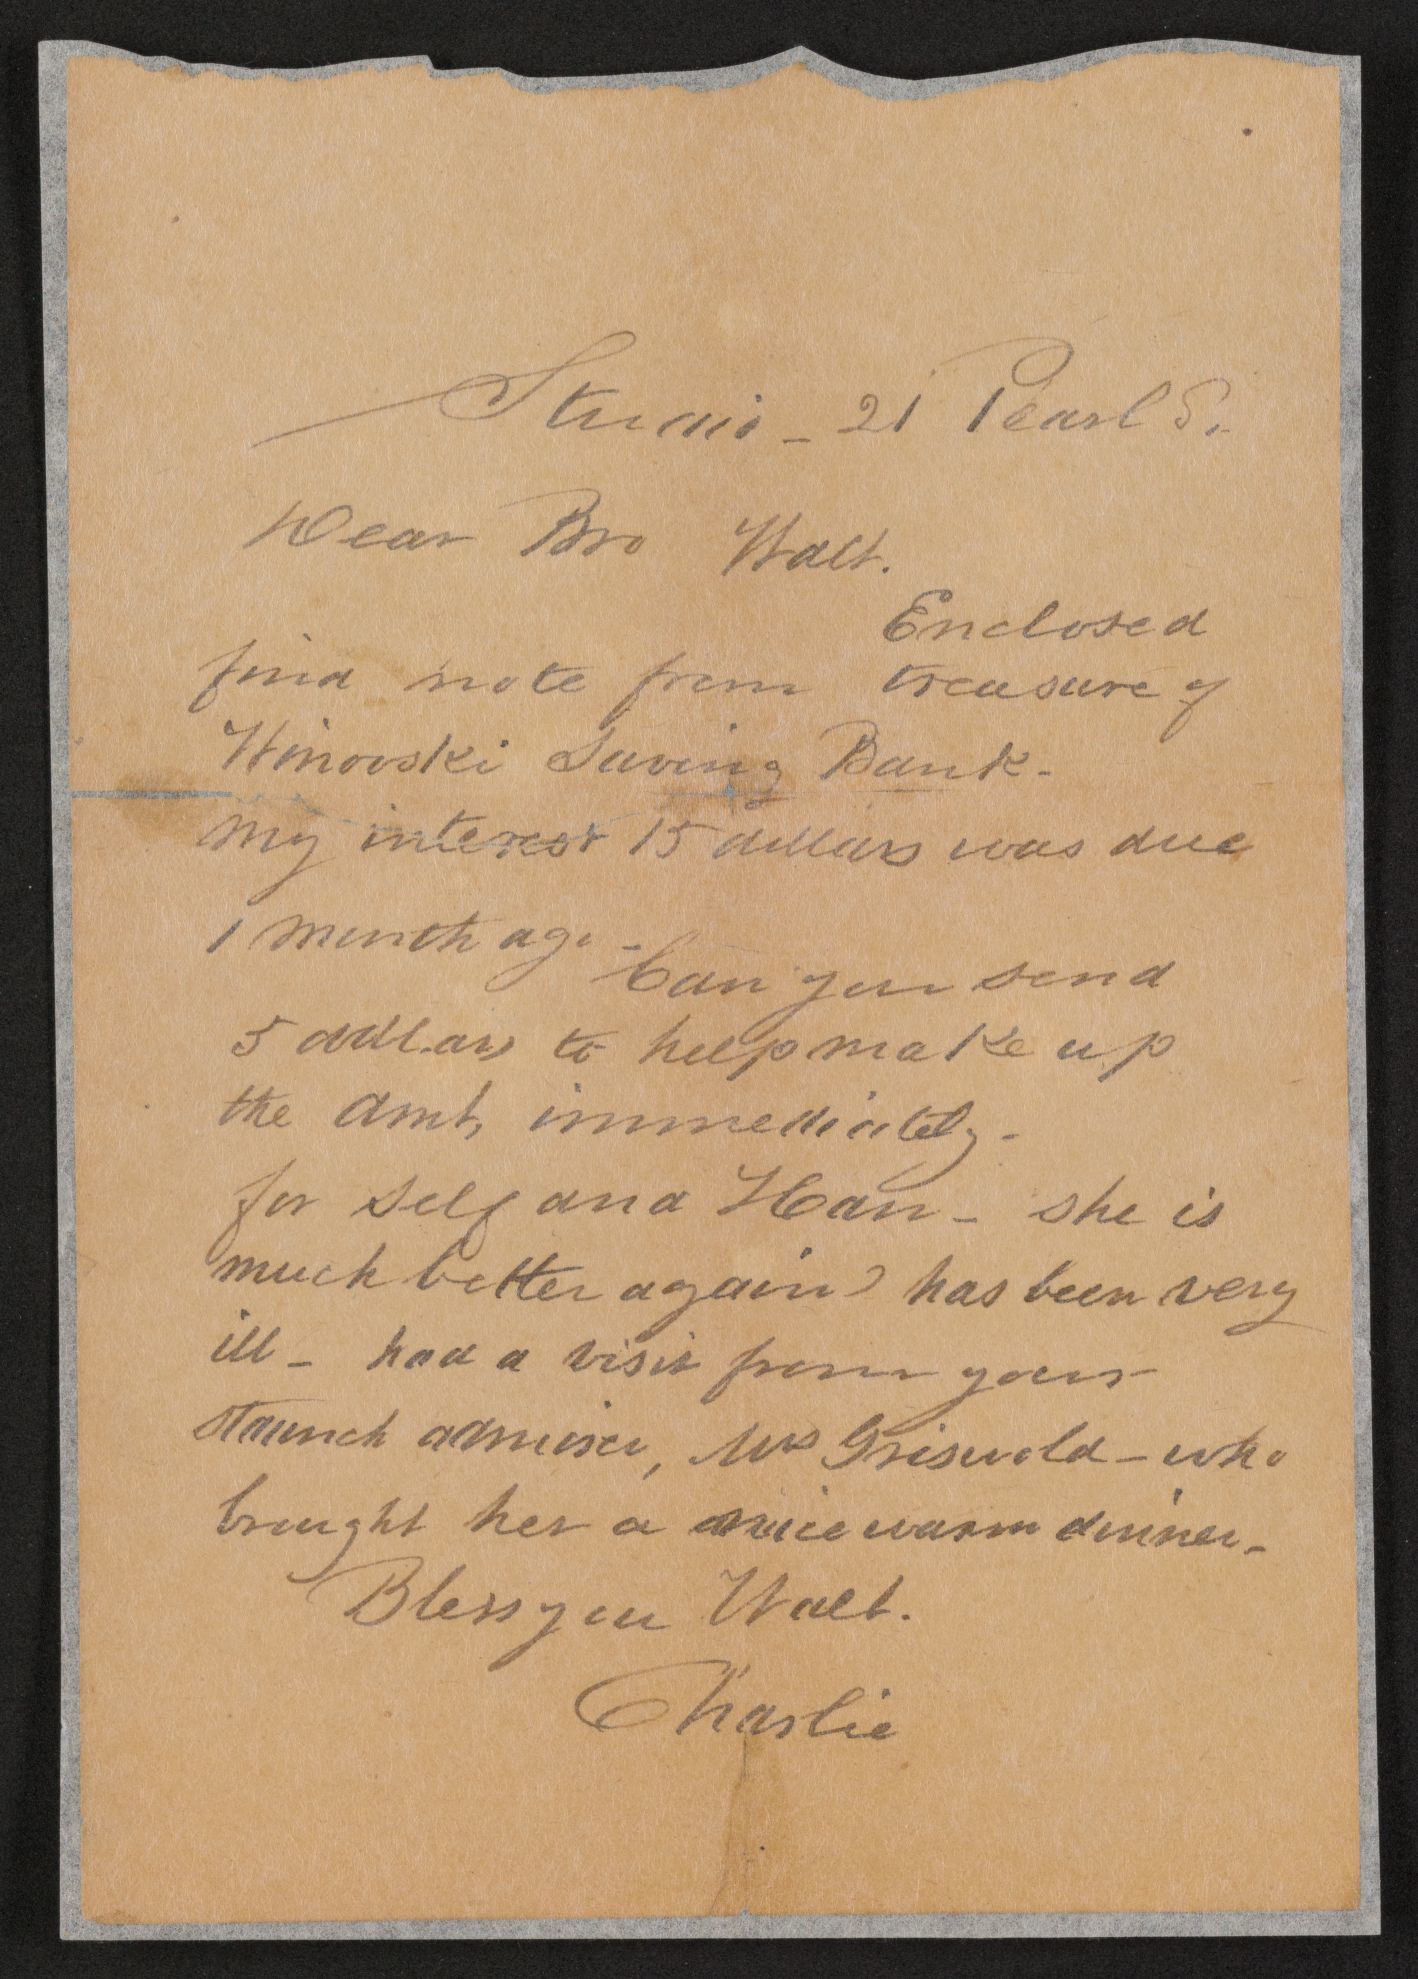 Studio - 21 Pearl St.
Dear Bro Walt.
Enclosed
find note from treasure of
Winooski Saving Bank -
my interest 15 dollars was due
1 month ago -
Can you send
5 dollars to help make up
the amt, immediately -
for self and Han - she is
much better again) has been very
ill - had a visit from your
staunch admirer, Mrs Griswold - who
brought her a nice warm dinner -
Bless you Walt.
Charlie